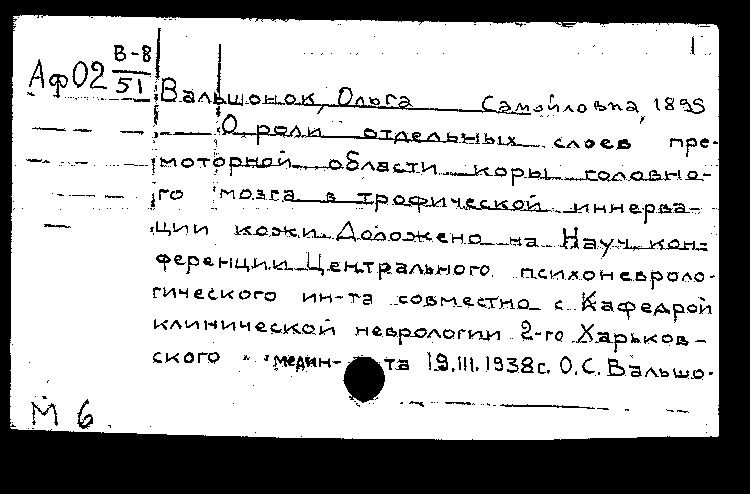 1
Аф02 В-8/51
Вальшонок, Ольга Самойловна, 1895
О роли отдельных слоев пре-
моторной области коры головно-
го мозга в трофической иннерва-
ции кожи. Доложено на Науч. кон-
ференции Центрального психоневроло-
гического ин-та совместно с Кафедрой
клинической неврологии 2-го Харьков-
ского медин-та 19.III.1938г. О.С. Вальшо-
М 6